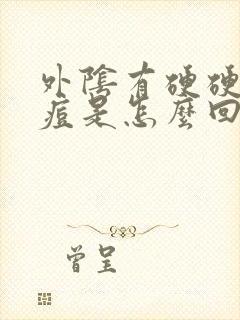 外陰有硬硬
痘是怎麼回
曾呈